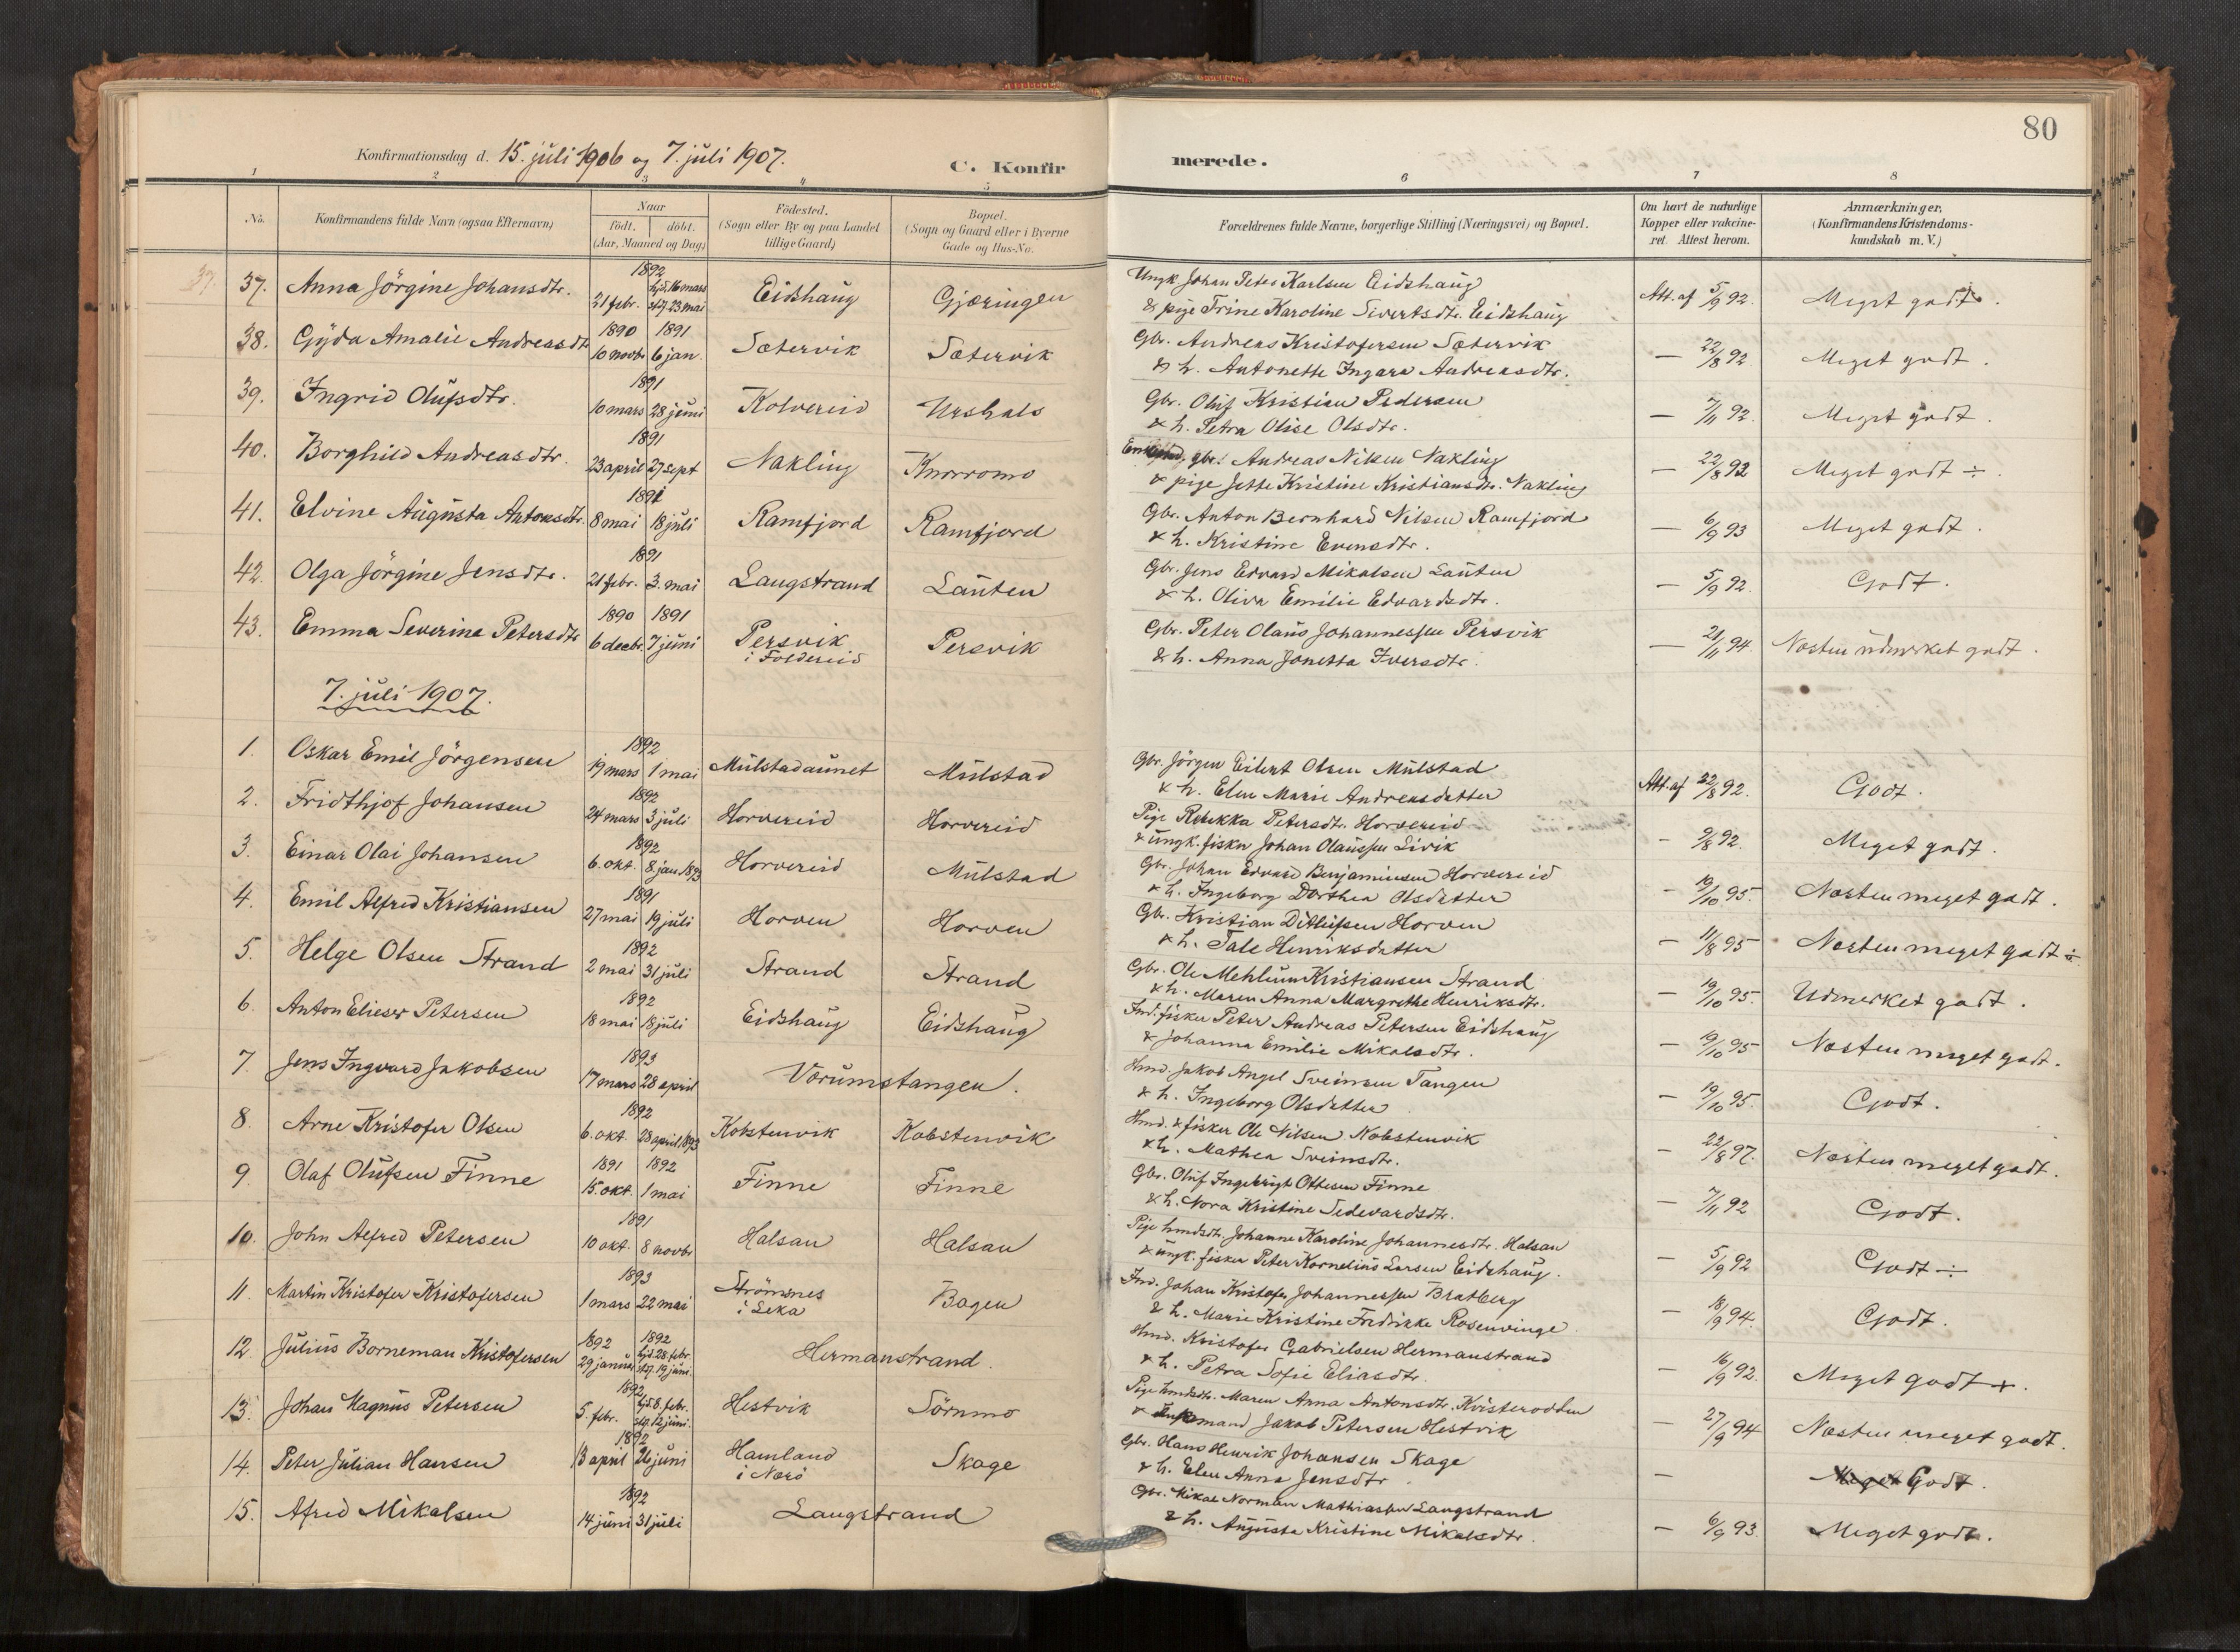 80
Konfirmationsdag d. 15. juli 1906 og 7. juli 1907.
C. Konfirmerede.
1 2 3 4 5 6 7 8
No. Konfirmandens fulde Navn (ogsaa Efternavn) Naar født. døbt. (Aar, Maaned og Dag) Fødested. (Sogn eller By og paa Landet tillige Gaard) Bopæl. (Sogn og Gaard eller i Byerne Gade og Hus-No. Forældrenes fulde Navne, borgerlige Stilling (Næringsvei) og Bopæl. Om havt de naturlige Kopper eller vakcineret. Attest herom. Anmærkninger, (Konfirmandens Kristendomskundskab m. V.)
37. Anna Jörgine Johansdtr. 1892 21 febr. hjd. 16 mars stf. 23 mai Eidshaug Gjæringen Ungk. Johan Peter Karlsen Eidshaug
& pige Trine Karoline Sivertsdtr. Eidshaug Att. af 5/9 92. Meget godt.
38. Gyda Amalie Andreasdtr 1890 10 novbr 1891 6 jan. Sætervik Sætervik Gbr. Andreas Kristofersen Sætervik
& h. Antonette Ingara Andreasdtr. — 22/8 92 Meget godt.
39. Ingrid Olufsdtr. 1891 10 mars 28 juni Kolvereid Urshals Gbr. Oluf Kristian Pedersen
& h. Petra Olise Olsdtr. — 7/11 92. Meget godt.
40. Borghild Andreasdtr. 1891 23 april 27 sept Nakling Knorromo gbr. Andreas Nilsen Nakling
& pige Jette Kristine Kristiansdtr. Nakling — 22/8 92 Meget godt ÷.
41. Elvine Augusta Antonsdtr. 1891 8 mai 18 juli Ramfjord Ramfjord Gbr. Anton Bernhard Nilsen Ramfjord
& h. Kristine Evensdtr. — 6/9 93 Meget godt.
42. Olga Jörgine Jensdtr. 1891 21 febr. 3. mai Laugstrand Lauten Gbr. Jens Edvard Mikalsen Lauten
& h. Oliva Emilie Edvardsdtr. — 5/9 92. Godt.
43. Emma Severine Petersdtr 1890 6 decbr. 1891 7 juni Persvik i Foldereid Persvik Gbr. Peter Olaus Johannessen Persvik
& h. Anna Jonetta Iversdtr. — 21/11 94. Næsten udmerket godt.
7. juli 1907.
1. Oskar Emil Jörgensen 1892 19 mars 1 mai Mulstadaunet Mulstad Gbr. Jörgen Eilert Olsen Mulstad
& h. Elen Marie Andreasdatter Att. af 22/8 92. Godt.
2. Fridthjof Johansen 1892 24 mars 3 juli Horvereid Horvereid Pige Rebekka Petersdtr. Horvereid
& ungk. fisker Johan Olaussen Livik — 9/8 92. Meget godt.
3. Einar Olai Johansen 1892 6. okt. 8. jan. 1893 Horvereid Mulstad Gbr. Johan Edvard Benjaminsen Horvereid
& h. Ingeborg Dorthea Olsdatter — 19/10 95. Næsten meget godt.
4. Emil Alfred Kristiansen 1891 27 mai 19 juli Horven Horven Gbr. Kristian Ditlufsen Horven
& h. Tale Henriksdatter — 11/8 95 Næsten meget godt ÷.
5. Helge Olsen Strand 1892 2 mai 31 juli Strand Strand Gbr. Ole Mehlum Kristiansen Strand
& h. Maren Anna Margrethe Henriksdtr. — 19/10 95. Udmerket godt.
6. Anton Elieser Petersen 1892 18 mai 18 juli Eidshaug Eidshaug Ind. fisker Peter Andreas Petersen Eidshaug
& Johanna Emilie Mikalsdtr. — 19/10 95 Næsten meget godt.
7. Jens Ingvard Jakobsen 1893 17 mars 28 april Værumstangen. Hmd. Jakob Angel Sveinsen Tangen
& h. Ingeborg Olsdatter — 19/10 95. Godt.
8. Arne Kristofer Olsen 1892 6. okt. 28 april 1893 Kobstenvik Kobstenvik Hmd. & fisker Ole Nilsen Kobstenvik
& h. Mathea Sveinsdtr. — 22/8 97. Næsten meget godt.
9. Olaf Olufsen Finne 1891 15. okt. 1892 1 mai Finne Finne Gbr. Oluf Ingebrigt Ottesen Finne
& h. Nora Kristine Sedevardsdtr. — 7/11 92 Godt.
10. John Alfred Petersen 1891 10 okt. 8 novbr Halsan Halsan Pige hmdsdtr. Johanne Karoline Johannesdtr. Halsan
& ungk. fisker Peter Kornelius Larsen Eidshaug. — 5/9 92 Godt ÷
11. Martin Kristofer Kristofersen 1893 1 mars 22 mai Strömsnes i Leka Bogen Ind. Johan Kristofer Johannessen Bratberg
& h. Marie Kristine Fredrikke Rosenvinge — 18/9 94. Godt.
12. Julius Borneman Kristofersen 1892 29 januar 1892 hjd. 28 febr. stf. 19 juni. Hermanstrand. Hmd. Kristofer Gabrielsen Hermanstrand
& h. Petra Sofie Eliasdtr. — 16/9 92. Meget godt +.
13. Johan Magnus Petersen 1892 5. febr. hjd. 8. febr. stf. 12 juni. Hestvik Sörnmo Pige hmdsdtr. Maren Anna Antonsdtr. Kvisterodden
& Jakob Petersen Hestvik — 27/9 94 Næsten meget godt.
14. Peter Julian Hansen 1892 13 april 26 juni Hamland i Nærö Skage Gbr. Hans Henrik Johansen Skage
& h. Elen Anna Jensdtr. — Meget Godt.
15. Afred Mikalsen 1892 14 juni 31 juli Laugstrand Gbr. Mikal Norman Mathiassen Laugstrand
& h. Augusta Kristine Mikalsdtr. — 6/9 93. Meget godt.